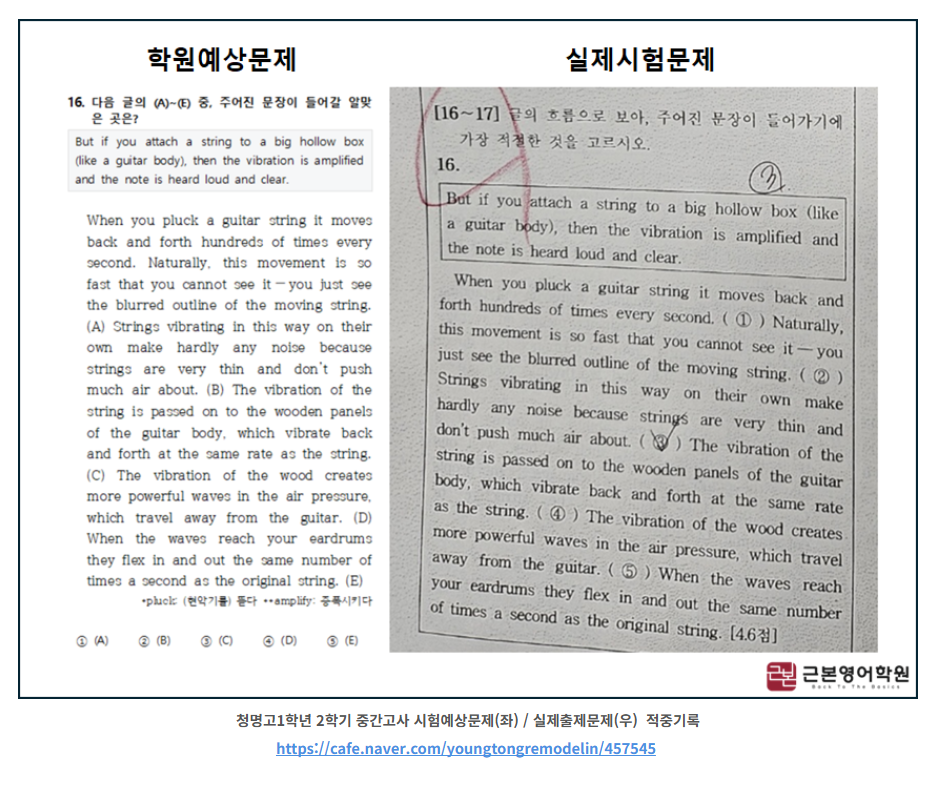 학원예상문제
16. 다음 글의 (A)~(E) 중, 주어진 문장이 들어갈 알맞
은 곳은?
But if you attach a string to a big hollow box
(like a guitar body), then the vibration is amplified
and the note is heard loud and clear.
When you pluck a guitar string it moves
back and forth hundreds of times every
second. Naturally, this movement is so
fast that you cannot see it — you just see
the blurred outline of the moving string.
(A) Strings vibrating in this way on their
own make hardly any noise because
strings are very thin and don't push
much air about. (B) The vibration of the
string is passed on to the wooden panels
of the guitar body, which vibrate back
and forth at the same rate as the string.
(C) The vibration of the wood creates
more powerful waves in the air pressure,
which travel away from the guitar. (D)
When the waves reach your eardrums
they flex in and out the same number of
times a second as the original string. (E)
*pluck: (현악기를) 뜯다 **amplify: 증폭시키다
① (A) ② (B) ③ (C) ④ (D) ⑤ (E)
실제시험문제
[16~17] 글의 흐름으로 보아, 주어진 문장이 들어가기에
가장 적절한 것을 고르시오.
16.
③
But if you attach a string to a big hollow box (like
a guitar body), then the vibration is amplified and
the note is heard loud and clear.
When you pluck a guitar string it moves back and
forth hundreds of times every second. ( ① ) Naturally,
this movement is so fast that you cannot see it — you
just see the blurred outline of the moving string. ( ② )
Strings vibrating in this way on their own make
hardly any noise because strings are very thin and
don't push much air about. ( ③ ) The vibration of the
string is passed on to the wooden panels of the guitar
body, which vibrate back and forth at the same rate
as the string. ( ④ ) The vibration of the wood creates
more powerful waves in the air pressure, which travel
away from the guitar. ( ⑤ ) When the waves reach
your eardrums they flex in and out the same number
of times a second as the original string. [4.6점]
근본 근본영어학원
Back To The Basics
청명고1학년 2학기 중간고사 시험예상문제(좌) / 실제출제문제(우) 적중기록
https://cafe.naver.com/youngtongremodelin/457545